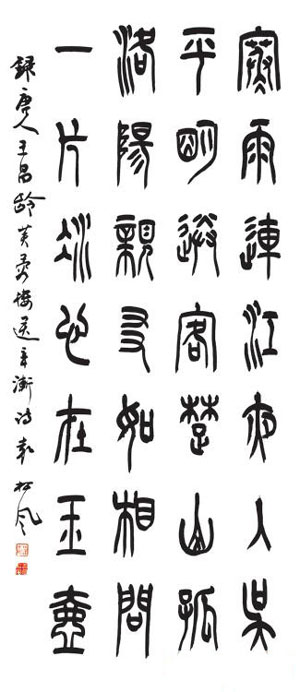 寒雨連江夜入吳
平明送客楚山孤
洛陽親友如相問
一片冰心在玉壺
錄唐人王昌齡芙蓉樓送辛漸詩 松風